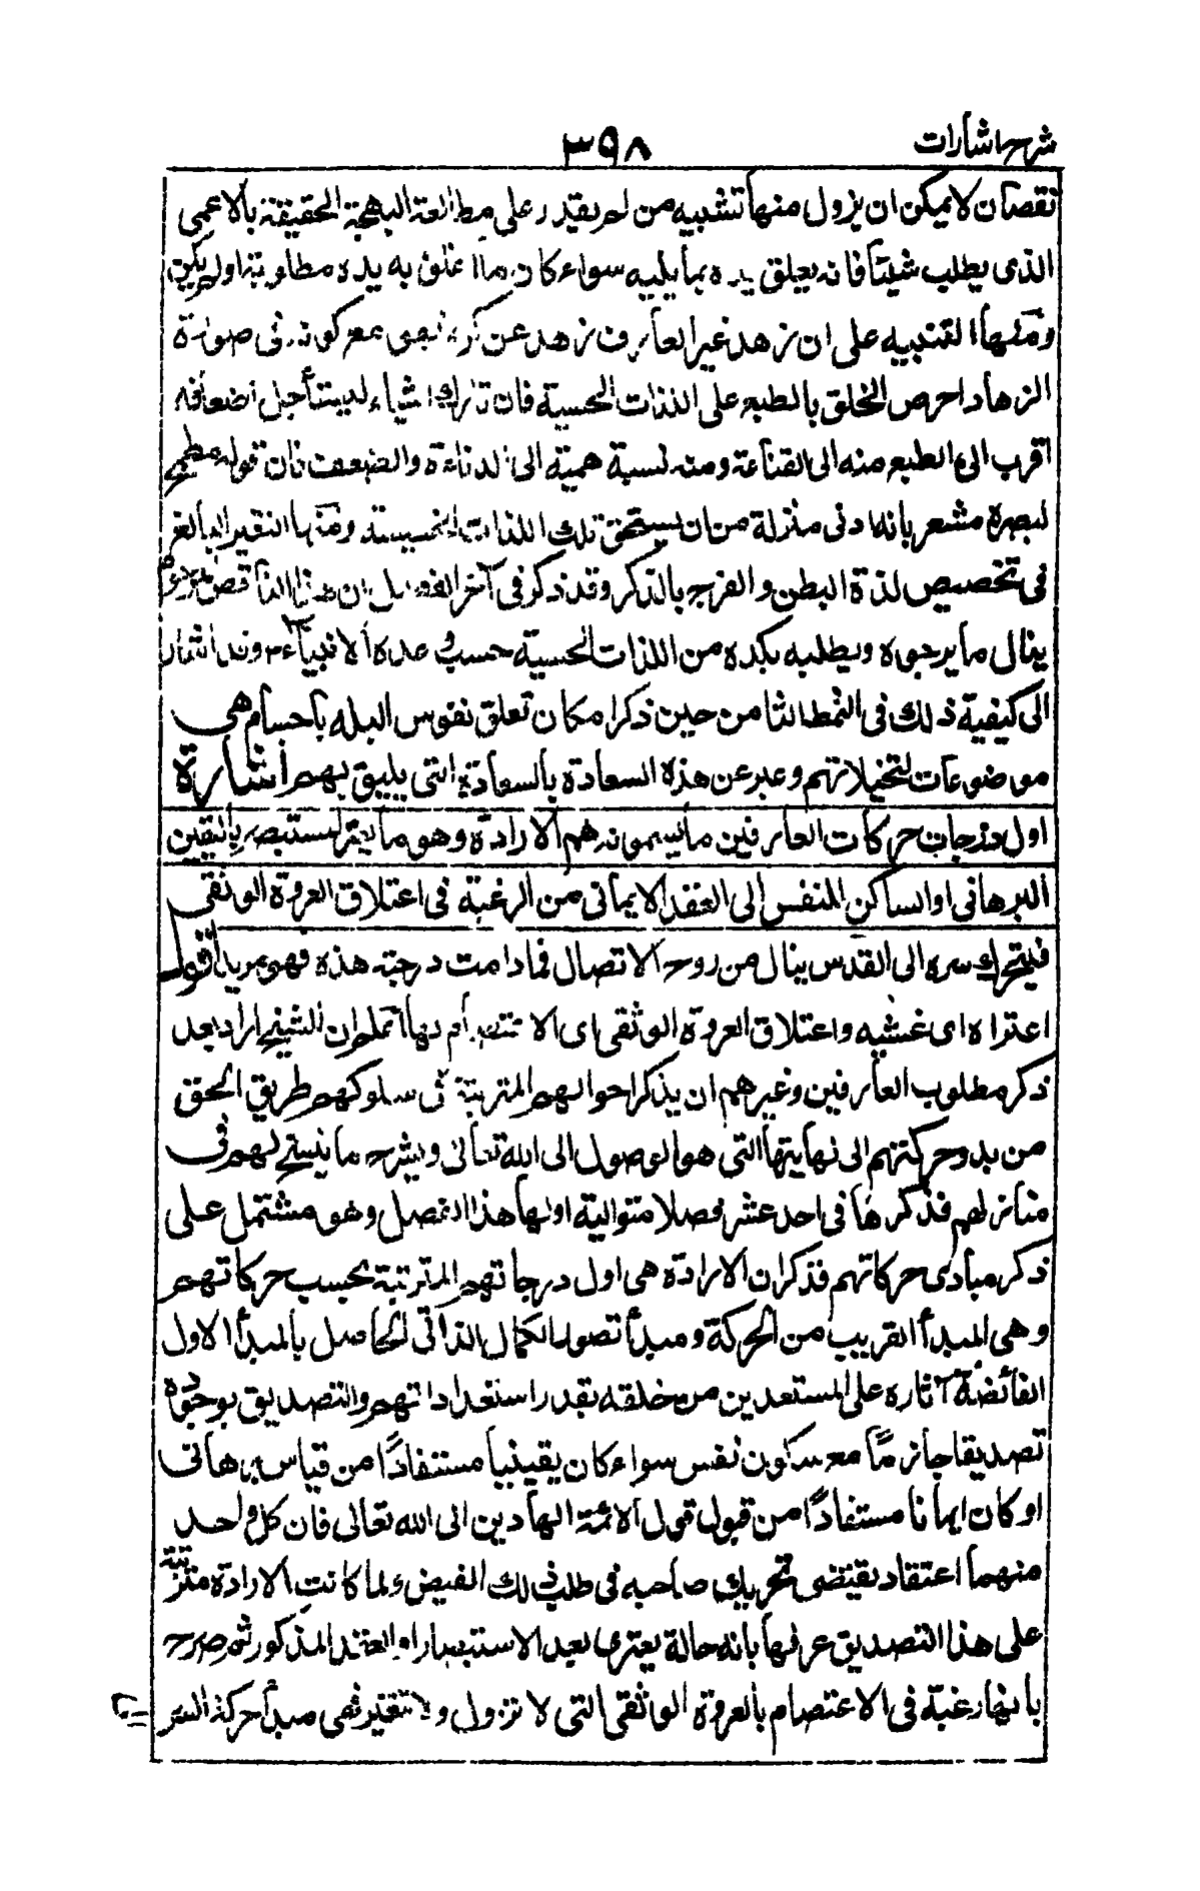 شرح اشارات
٣٩٨
نقصان لا يمكن ان يزول منها تشبيه من لم يقدر على مطالعة البهجة الحقيقة بالاعمى
الذى يطلب شيئا فانه يعلق يده بما يليه سواء كان ما اعلق به يده مطلوبة اولم يكن
ومنها التنبيه على ان زهد غير العارف زهد عن كره فهو مع كونه فى صورة
الزهاد احرص الخلق بالطبع على اللذات الحسية فان تارك اشياء ليستأجل اضعافه
اقرب الى الطمع منه الى القناعة ومنه نسبة همته الى الدناءة والضعف فان قوله مطمح
لبصره مشعر بانه ادنى منزلة من ان يستحق تلك اللذات الخسيسة ومنها التعيير البالغ
فى تخصيص لذة البطن والفرج بالذكر وقد ذكر فى آخر الفصل ان هذا الناقص
ينال ما يرجوه ويطلبه بكده من اللذات الحسية حسب وعده الانبياء ع م وقد اشار
الى كيفية ذلك فى النمط الثامن حين ذكر امكان تعلق نفوس البله باجسام هى
موضوعات لتخيلاتهم وعبر عن هذه السعادة بالسعادة التى يليق بهم اشارة
اول درجات حركات العارفين ما يسمونه هم الارادة وهو ما يعترى المستبصر باليقين
البرهانى او الساكن النفس الى العقد الايمانى من الرغبة فى اعتلاق العروة الوثقى
فيتحرك سره الى القدس ينال من روح الاتصال فما دامت درجته هذه فهو مريد اقول
اعتراه اى غشيه واعتلاق العروة الوثقى اى الاعتصام بها اعلم ان الشيخ اراد بعد
ذكر مطلوب العارفين وغيرهم ان يذكر احوالهم المترتبة فى سلوكهم طريق الحق
من بدو حركتهم الى نهايتها التى هو الوصول الى الله تعالى ويشرح ما يسنح لهم فى
منازلهم فذكرها فى احد عشر فصلا متوالية اولها هذا الفصل وهو مشتمل على
ذكر مبادى حركاتهم فذكر ان الارادة هى اول درجاتهم المترتبة بحسب حركاتهم
وهى المبدأ القريب من الحركة ومبدأ تصور الكمال الذاتى الحاصل بالمبدأ الاول
الفائضة آثاره على المستعدين من خلقه بقدر استعداداتهم والتصديق بوجوده
تصديقا جازما مع سكون نفس سواء كان يقينيا مستفادا من قياس برهانى
او كان ايمانا مستفادا من قبول قول الائمة الهادين الى الله تعالى فان كل واحد
منهما اعتقاد يقتضى تحريك صاحبه فى طلب ذلك الفيض ولما كانت الارادة مترتبة
على هذا التصديق عرفها بانه حالة يعترى بعد الاستبصار او العقد المذكور ثم صرح
بانها رغبة فى الاعتصام بالعروة الوثقى التى لا تزول ولا تتغير فهى مبدأ حركة السر